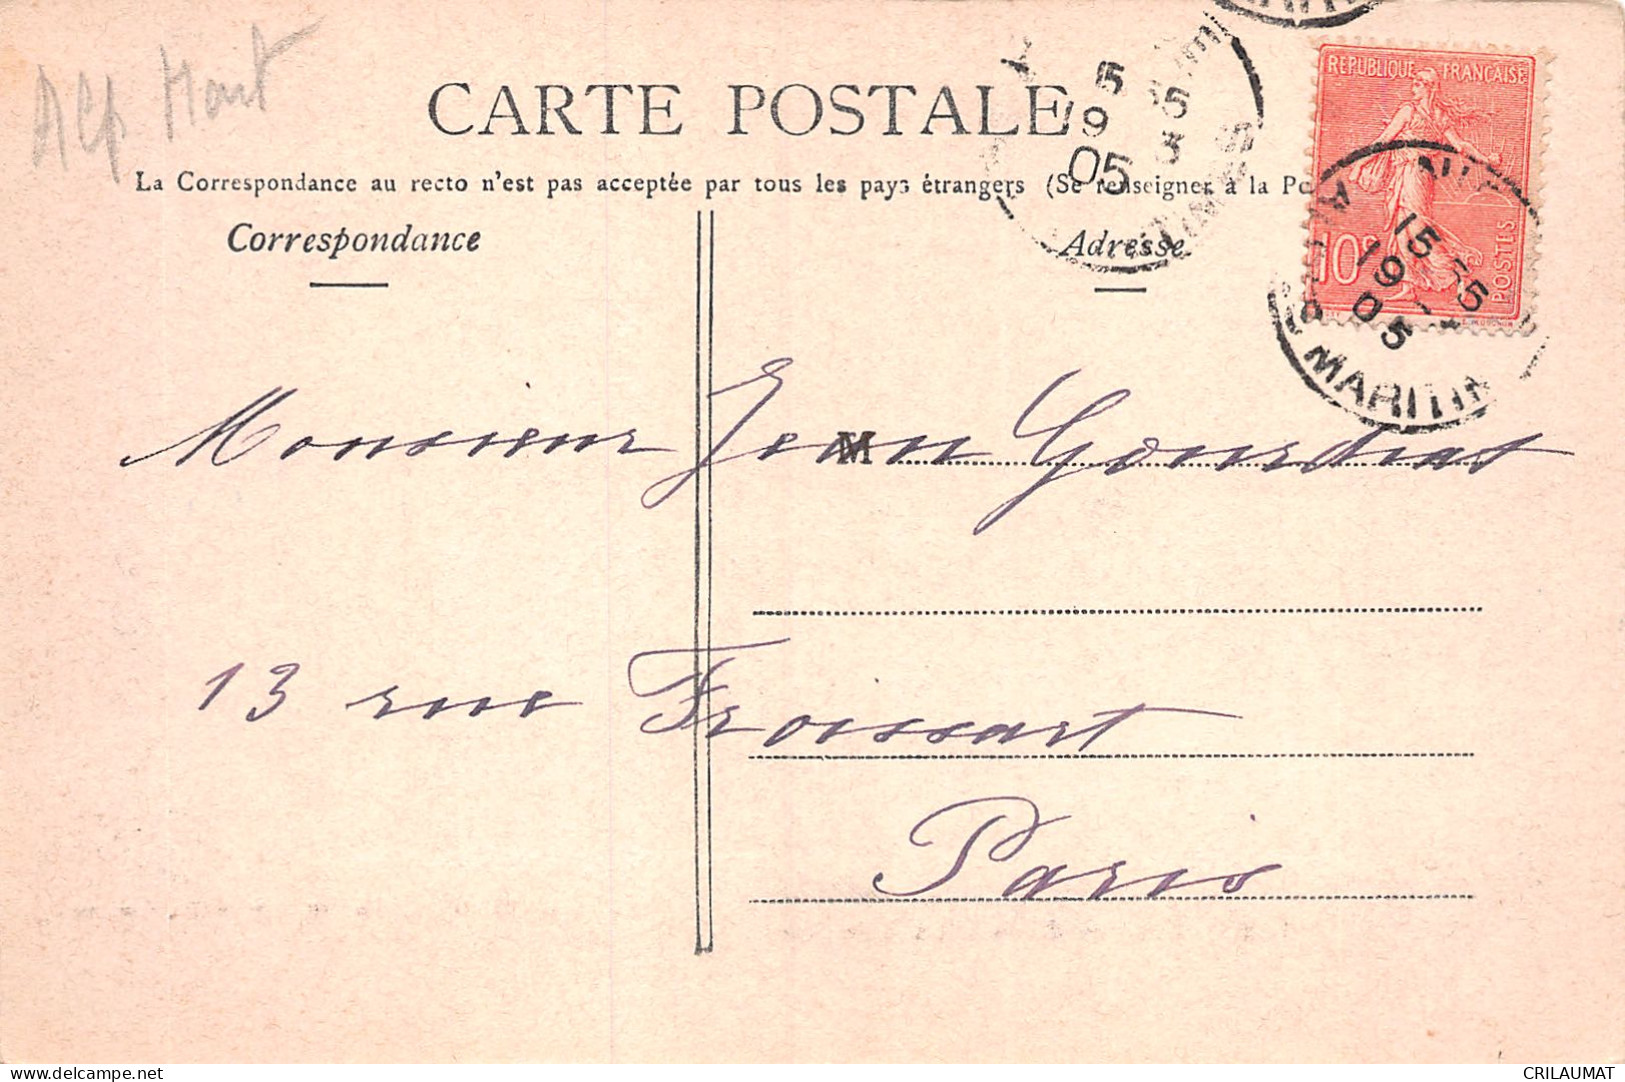 Alp Mart
CARTE POSTALE
La Correspondance au recto n'est pas acceptée par tous les pays étrangers (Se renseigner à la
Correspondance
Adresse
5
19
05
REPUBLIQUE FRANÇAISE
10c
POSTES
15
19
05
MARITIM
M
Monsieur Jean Gourdrat
13 rue Froissart
Paris
delcampe.net
CRILAUMAT